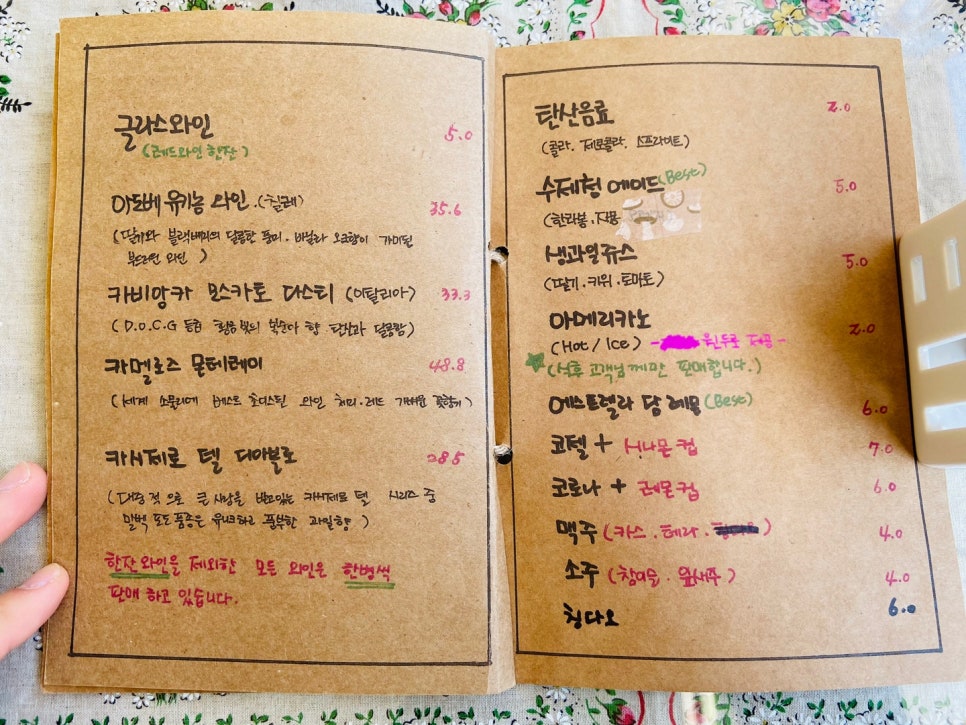 글라스와인 5.0
(레드와인 한잔)
아도베 유기농 와인.(칠레) 35.6
(딸기와 블랙베리의 달콤한 풍미. 바닐라 오크향이 가미된
부드러운 와인)
카비앙카 모스카토 다스티 (이탈리아) 33.3
(D.O.C.G 등급 황금빛의 복숭아 향 탄산과 달콤함)
카멜로즈 몬테레이 48.8
(세계 소믈리에 베스트 와인 처미.레드 가벼운 꽃향기)
카시제로 델 디아블로 28.5
(대중적으로 큰 사랑을 받고있는 카시제로 델 시리즈 중
말벡 포도품종은 유니크하고 풍부한 과일향)
한잔와인을 제외한 모든 와인은 한병씩
판매 하고 있습니다.
탄산음료 2.0
(콜라. 제로콜라. 스프라이트)
수제청 에이드(Best) 5.0
(한라봉.자몽
생과일쥬스 5.0
(딸기.키위.토마토)
아메리카노 2.0
(Hot/Ice) - 원두로 제공 -
(식후 고객님께만 판매합니다.)
에스트렐라 담 레몬(Best) 6.0
코젤 + 시나몬컵 7.0
코로나 + 레몬컵 6.0
맥주 (카스.테라. ) 4.0
소주 (참이슬. 잎새주) 4.0
칭다오 6.0